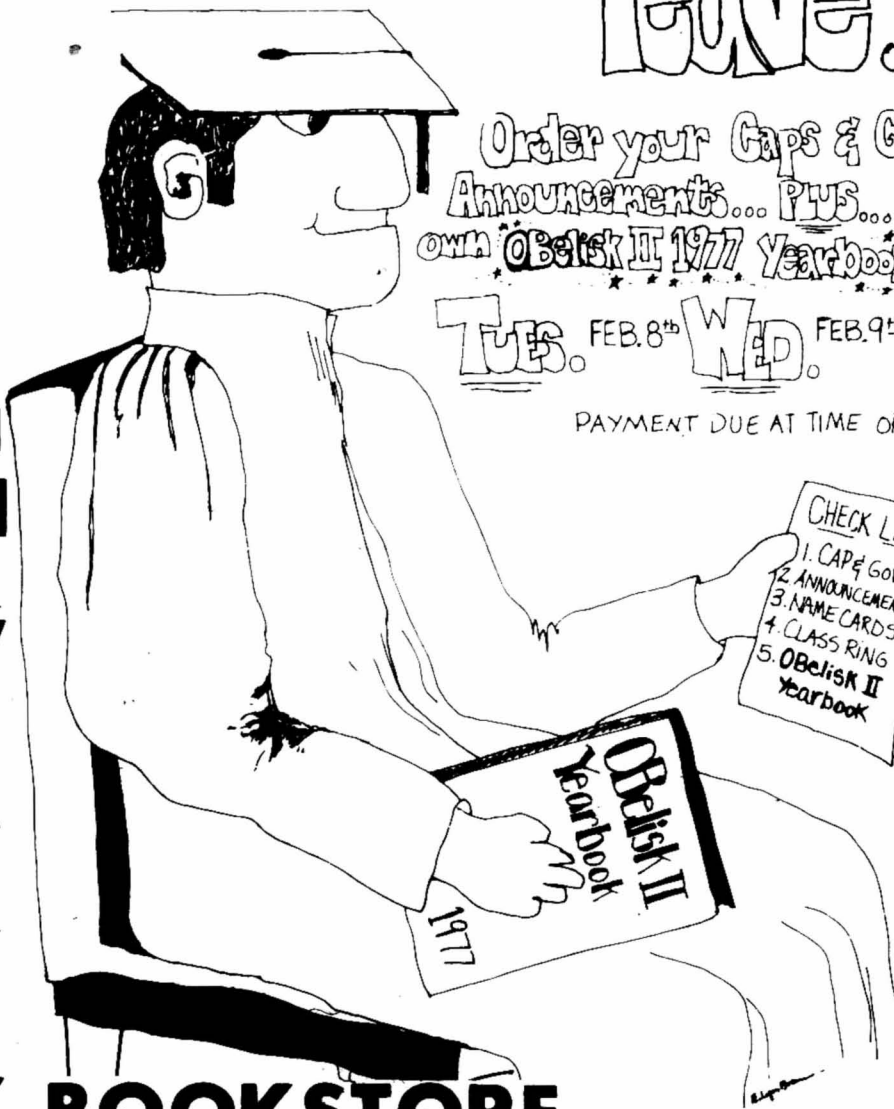 leave.
Order your Caps & G
Announcements... PLUS...
own OBelisk II 1977 Yearboo
TUES. FEB. 8th WED. FEB. 9t
PAYMENT DUE AT TIME O
CHECK L
1. CAP & GO
2. ANNOUNCEMEN
3. NAME CARDS
4. CLASS RING
5. OBelisk II
Yearbook
OBelisk II
Yearbook
1977
BOOKSTORE